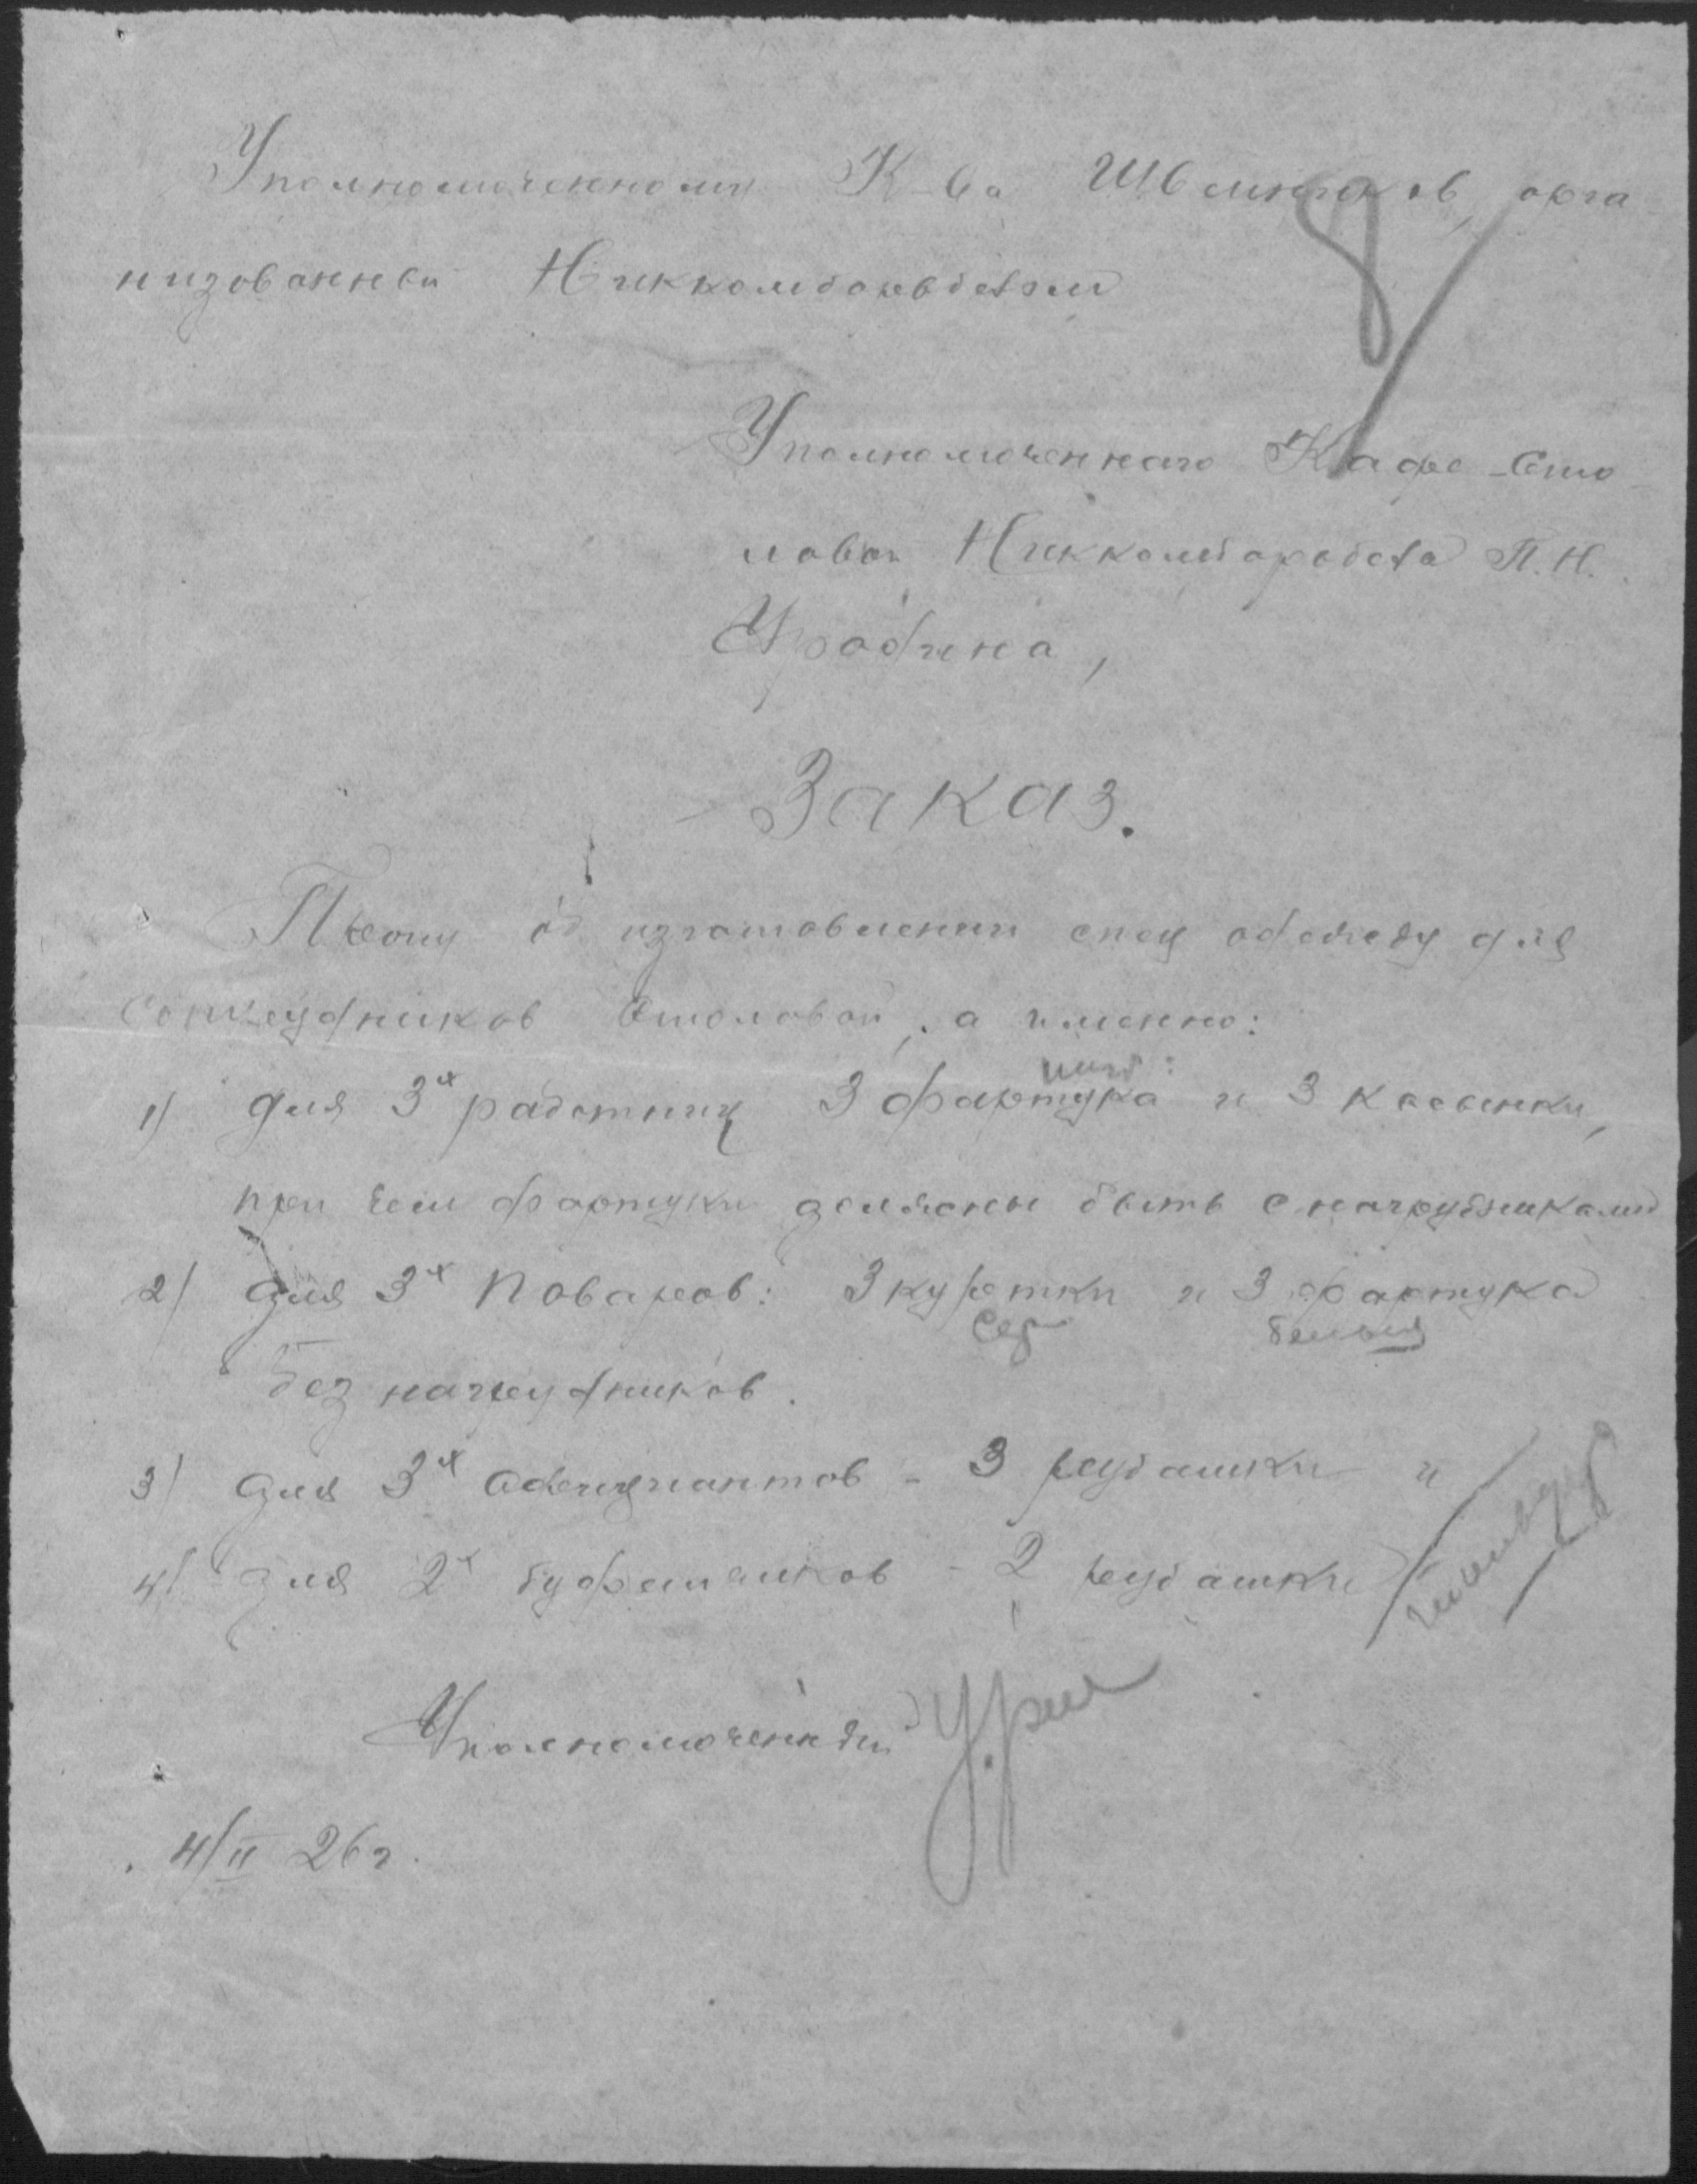 Уполномоченному К-ва Швейников, орга-
низованный Никкомборьбезом
8/
Уполномоченного Кафе-Сто-
ловой Никкомборьбеза П. Н.
Заказ.
Прошу об изготовлении спец одежду для
сотрудников столовой, а именно:
1) для 3х работниц 3 фартука и 3 косынки,
при чем фартуки должны быть с нагрудниками
2) Для 3х поваров: 3 куртки и 3 фартука
сер белыя
без нагрудников.
3) Для 3х официантов - 3 рубашки и
4) Для 2х буфетчиков - 2 рубашки
Уполномоченный
4/II 26 г.